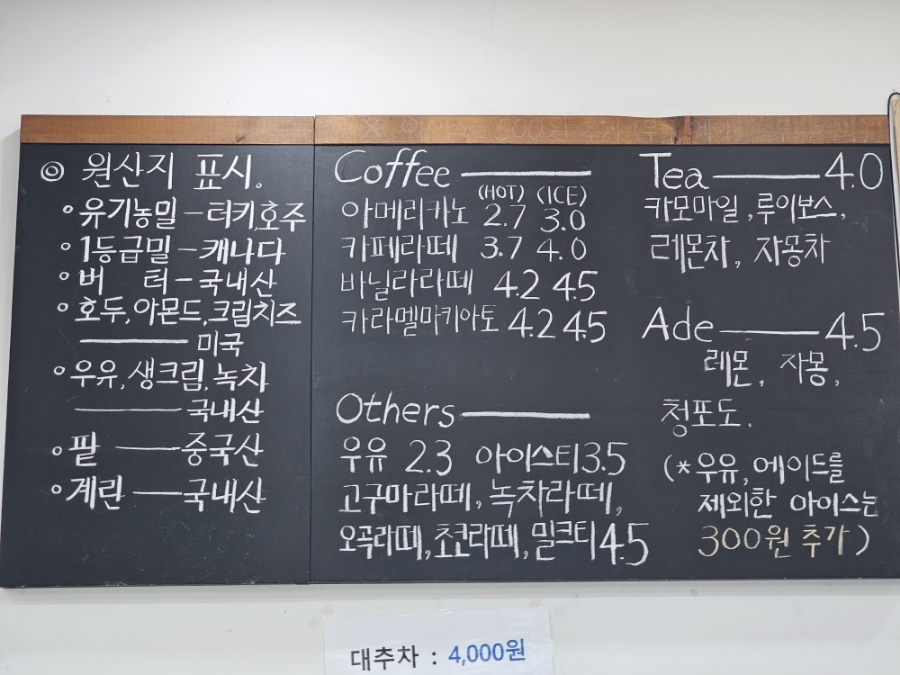 ◎ 원산지 표시.
∘유기농밀 - 터키,호주
∘1등급밀 - 캐나다
∘버 터 - 국내산
∘호두,아몬드,크림치즈
——— 미국
∘우유,생크림,녹차
——— 국내산
∘팥 ——— 중국산
∘계란 ——— 국내산
Coffee ———
(HOT) (ICE)
아메리카노 2.7 3.0
카페라떼 3.7 4.0
바닐라라떼 4.2 4.5
카라멜마키아토 4.2 4.5
Others ———
우유 2.3 아이스티 3.5
고구마라떼, 녹차라떼,
오곡라떼, 초코라떼, 밀크티 4.5
Tea ——— 4.0
카모마일, 루이보스,
레몬차, 자몽차
Ade ——— 4.5
레몬, 자몽,
청포도.
(*우유,에이드를
제외한 아이스는
300원 추가)
대추차 : 4,000원